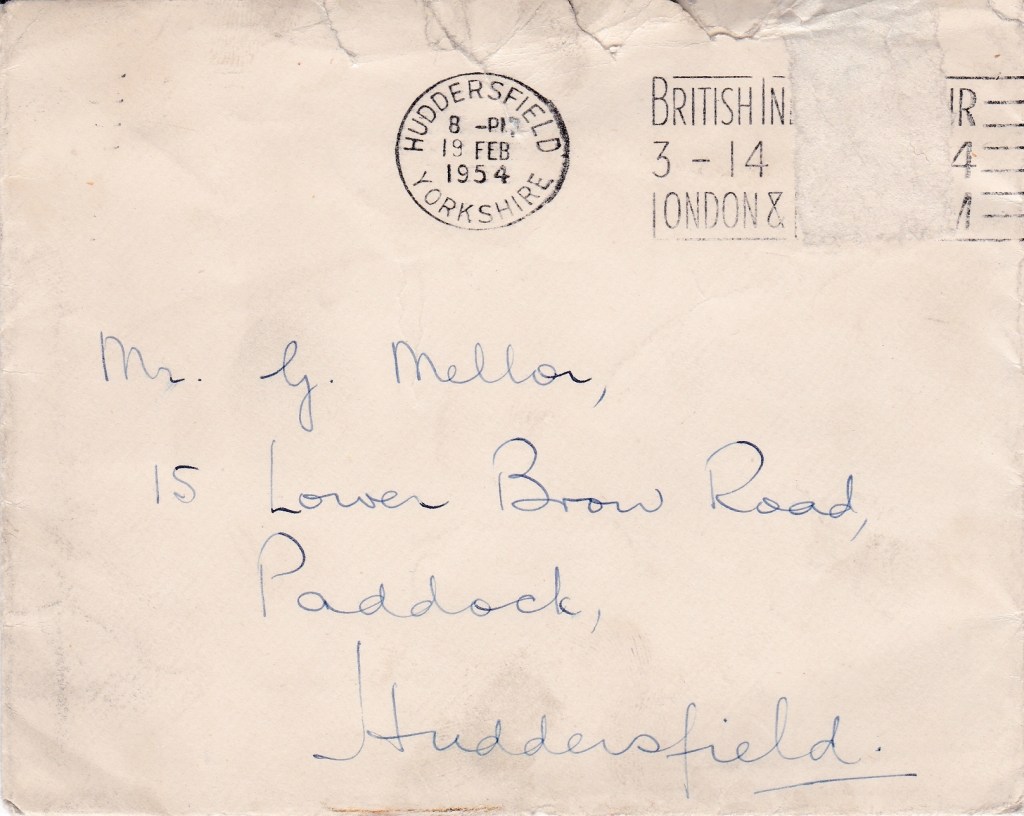 HUDDERSFIELD
8 -PM
19 FEB
1954
YORKSHIRE
BRITISH IN
3 - 14
LONDON &
Mr. G. Mellor,
15 Lower Brow Road,
Paddock,
Huddersfield.